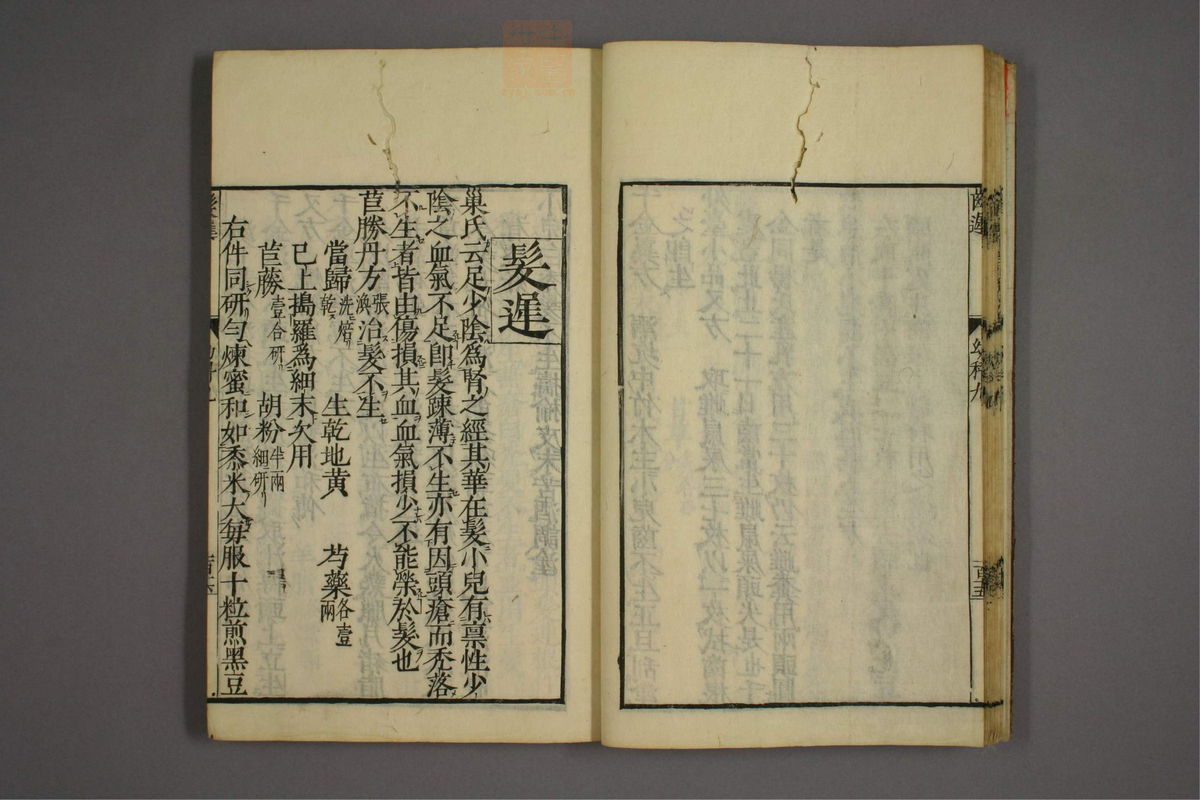 齒遲
幼科九
髮遲
巢氏云足少陰爲腎之經其華在髮小兒有禀性少
陰之血氣不足卽髮踈薄不生亦有因頭瘡而禿落
不生者皆由傷損其血血氣損少不能榮於髮也
苣勝丹方張渙治髮不生
當歸洗焙乾 生乾地黄 芍藥各壹兩
已上搗羅爲細末次用
苣藤壹合研 胡粉半兩細研
右件同研勻煉蜜和如黍米大每服十粒煎黑豆